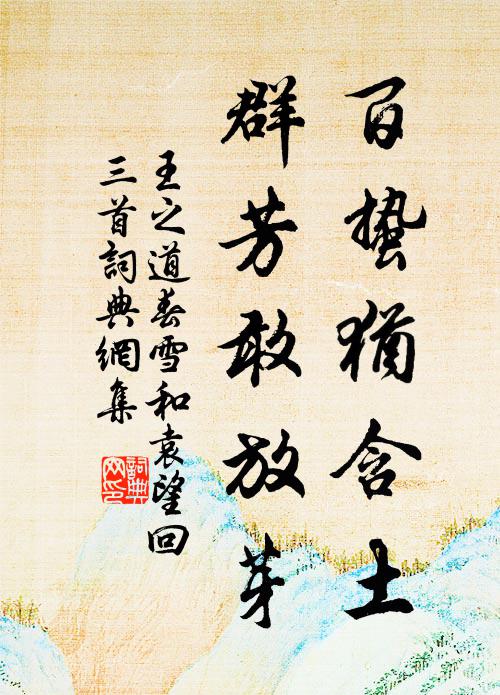 百蟄猶含土
群芳敢放芽
王之道春雪和袁望回
三首詞典網集
詞典網印